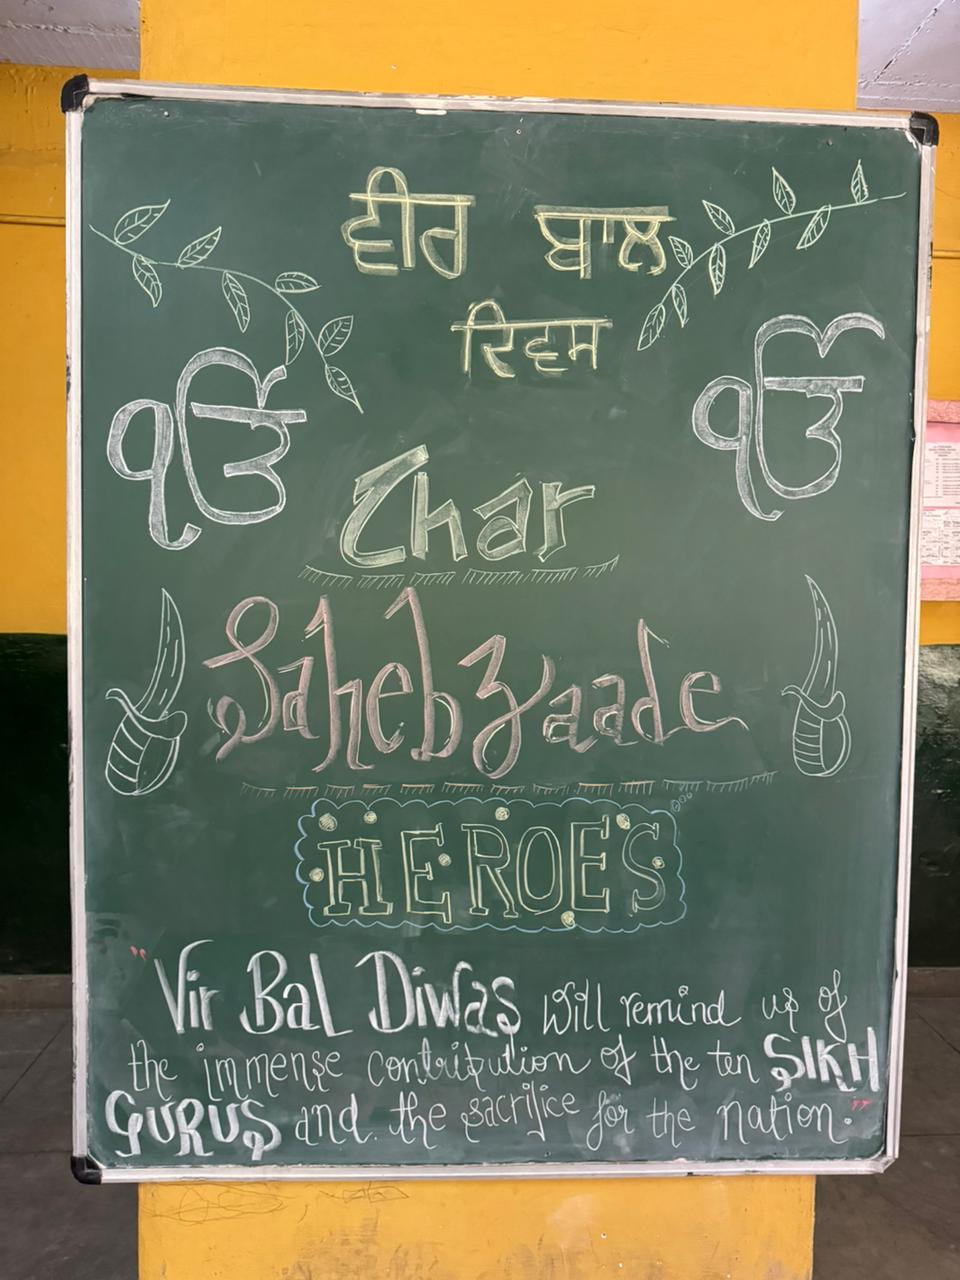 ਵੀਰ ਬਾਲ
ਦਿਵਸ
ੴ ੴ
Char
Sahebzaade
HEROES
"Vir Bal Diwas will remind us of
the immense contribution of the ten SIKH
GURUS and the sacrifice for the nation."